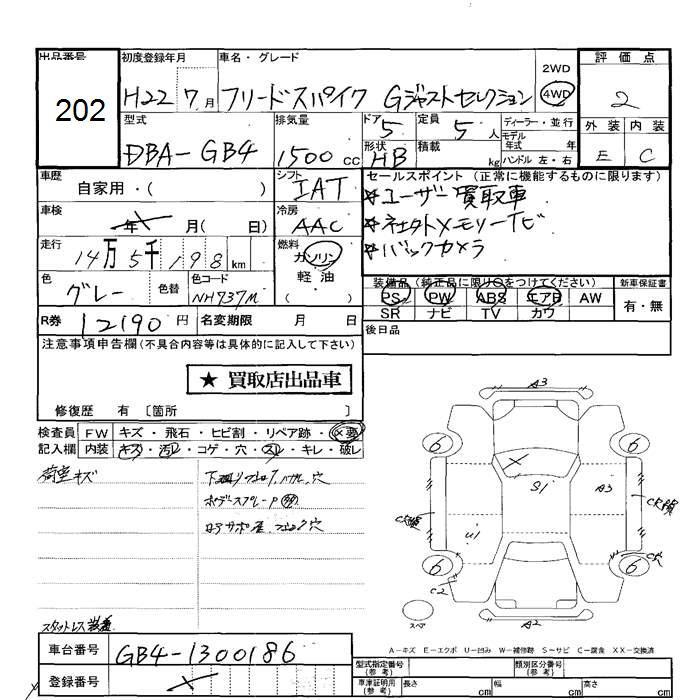 出品番号 初度登録年月 車名・グレード 2WD 4WD 評価点
202 H22 7月 フリードスパイク Gジャストセレクション 2
型式 排気量 ドア 5 定員 5人 ディーラー・並行 外装 内装
DBA-GB4 1500cc 形状 HB 積載 kg モデル年式 年 ハンドル 左・右 E C
車歴 自家用・( ) シフト IAT セールスポイント (正常に機能するものに限ります)
☆ユーザー買取車
車検 年 月( 日) 冷房 AAC
☆バックカメラ
走行 14万5千198km 燃料 ガソリン 軽油 ( )
色 グレー 色替 色コード NH737M 装備品(純正品に限り○をつけてください) 新車保証書
PS PW ABS エアB AW 有・無
SR ナビ TV カワ
R券 12190円 名変期限 月 日 後日品
注意事項申告欄(不具合内容等は具体的に記入して下さい)
★ 買取店出品車
修復歴 有 〔箇所 〕
検査員 FW キズ・飛石・ヒビ割・リペア跡・X要
記入欄 内装 キズ・汚レ・コゲ・穴・スレ・キレ・破レ
荷室キズ
スタットレス装着
A3
6 6
S1 A3
U1
6 6
C2
スペ A2
A-キズ E-エクボ U-凹み W-補修跡 S-サビ C-腐食 XX-交換済
車台番号 GB4-1300186 型式指定番号(参考) 類別区分番号(参考)
登録番号 車庫証明用(参考) 長さ cm 幅 cm 高さ cm